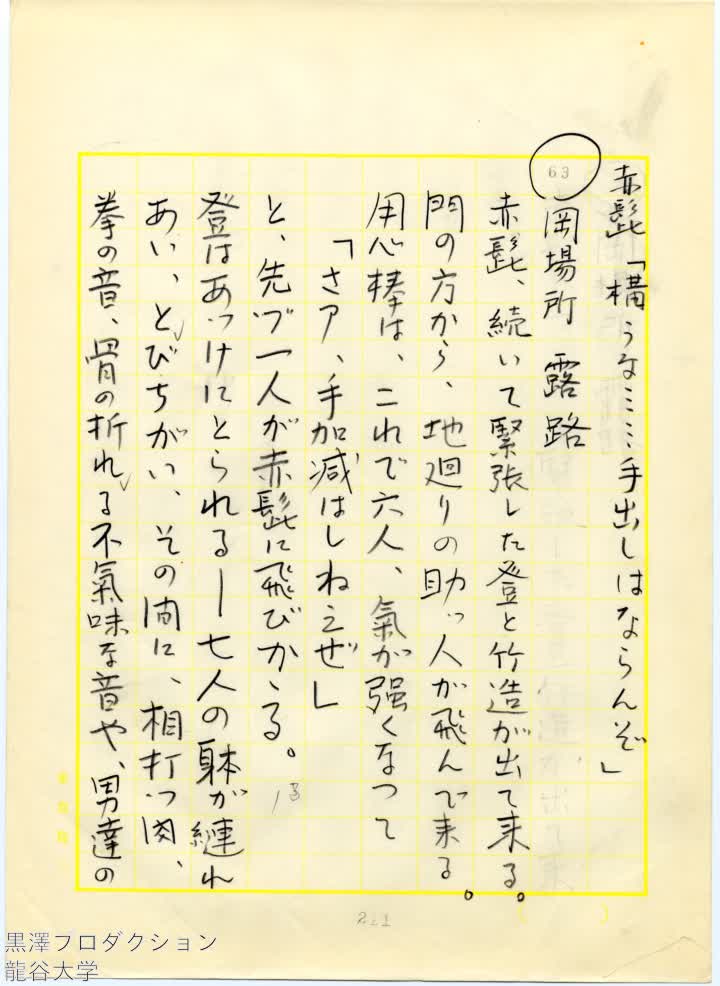 赤髭「構うな……手出しはならんぞ」
63
岡場所　露路
赤髭、続いて緊張した登と竹造が出て来る。
門の方から、地廻りの助っ人が飛んで来る。
用心棒は、これで六人、氣が強くなって
「さア、手加減はしねえぜ」
と、先づ一人が赤髭に飛びかゝる。
登はあっけにとられる―七人の躰が縺れ
あい、とびちがい、その間に、相打つ肉、
拳の音、骨の折れる不氣味な音や、男達の
221
黒澤プロダクション
龍谷大学